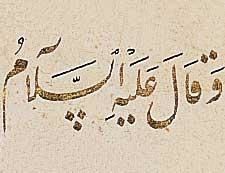 وَقَالَ عَلَيْهِ السَّلَامُ